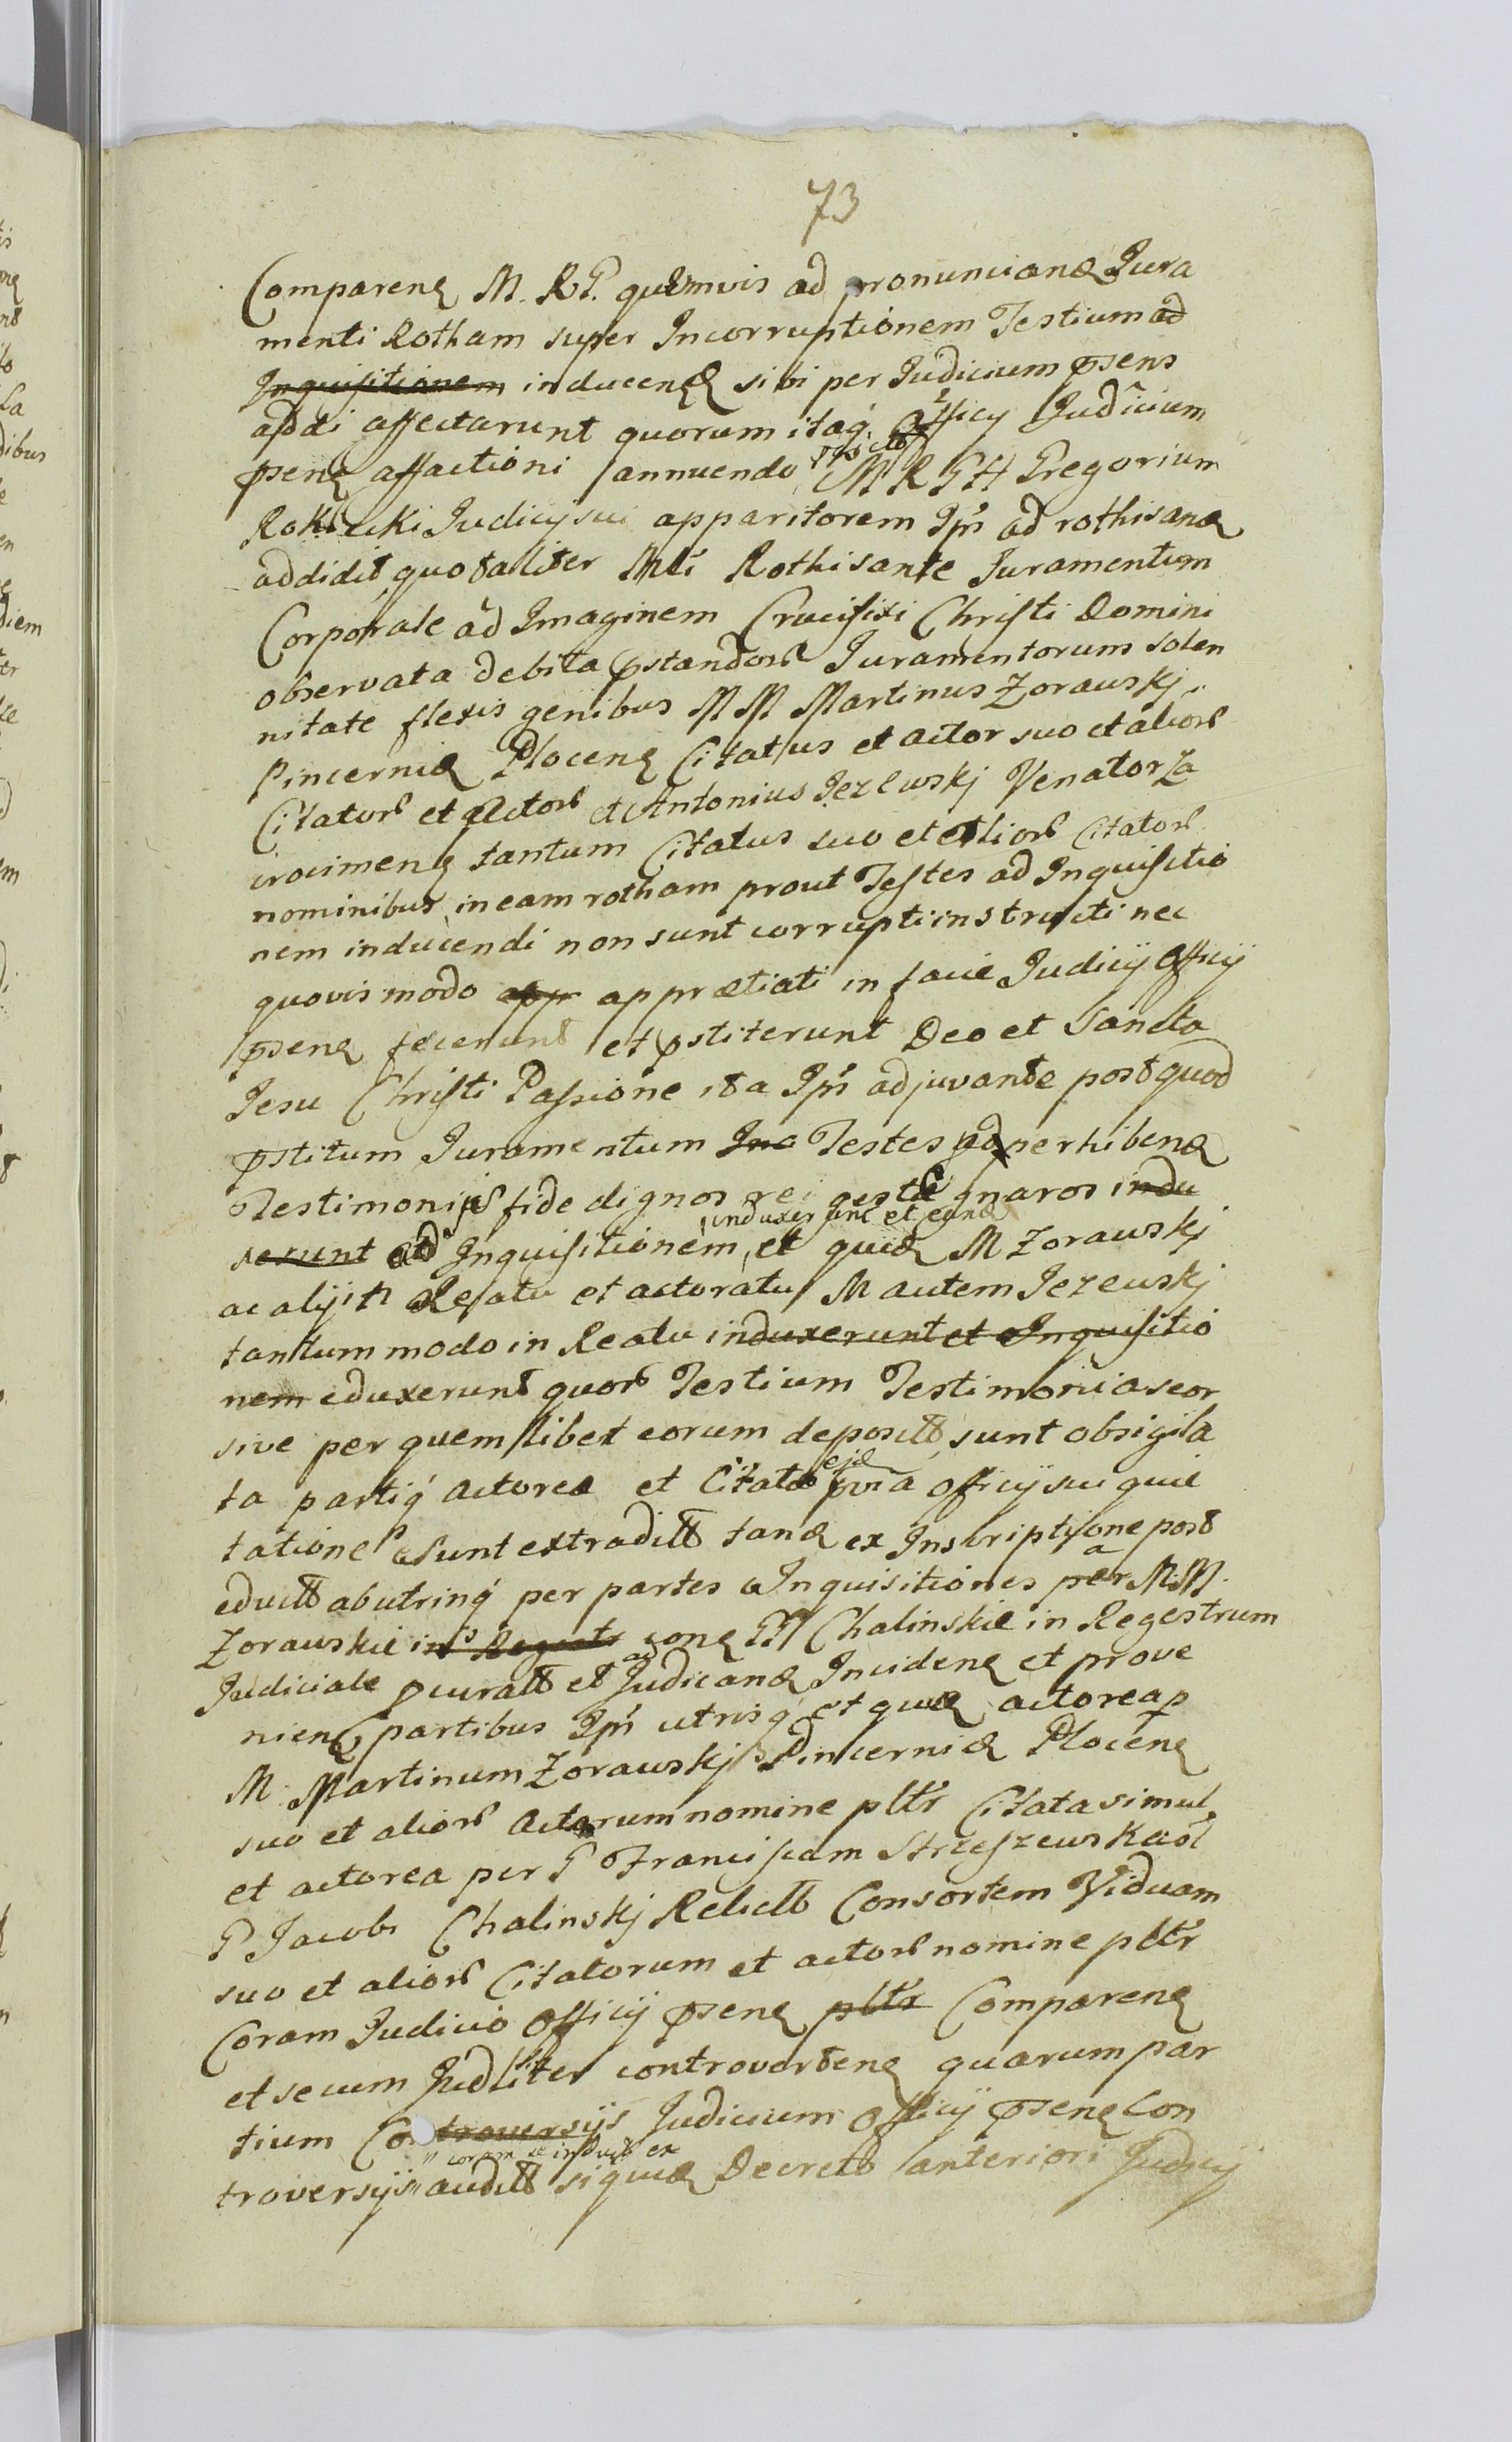 73
Comparenȩ M. R P. quemvis ad pronuncianȩ Jura
menti Rotham super Incorruptionem Testium ad
Inquisitionem inducenȩ sibi per Judicium psens
addi affectarunt quorum itaq Officy Judicium
psenȩ affectioni annuendo M R G H Gregorium
Rokicki Judicy sui apparitorem Ipis ad rothisanȩ
addidit, quo taliter Mti Rothisante Juramentum
Corporale ad Imaginem Crucifixi Christi Domini
observata debita pstandor Juramentorum solen
nitate flexis genibus M M Martinus Zorauskj
Pincerniȩ Plocenȩ Citatus et actor suo et alior
Citator et Actor et Antonius Jezewskj Venator Za
crocimenȩ tantum Citatus suo et Alior Citator
nominibus in eam rotham prout Testes ad Inquisitio
nem inducendi non sunt corrupti instructi nec
quovis modo app appraetiati in facie Judicij Officij
psenȩ fecerunt et pstiterunt Deo et Sancta
Jesu Christi Passione ita Ipis adjuvante post quod
pstitum Juramentum Inq Testes ad perhibenȩ
Testimonium fide dignos rei gestae gnaros indu
induxerunt et eanȩ
xerunt ad Inquisitionem, et quiȩ M Zorauskj
ac alij in Reatu et actoratu M autem Jezewskj
tantummodo in Reatu induxerunt et Inquisitio
nem eduxerunt quor Testium Testimonia seor
sive per quemlibet eorum deposita sunt obsigila
ta partiq Actorea et Citatae pvia officij sui quie
tatione sunt extradita tanȩ ex Inscriptione post
educta ab utrinq per partes Inquisitiones per M M
Zorauskie in Regestr conȩ G Chalinskie in Regestrum
Judiciale pcurata et ad Judicanȩ Incidenȩ et prove
nienȩ partibus Ipis utrisq et quiȩ actorea p
M Martinum Zorauskj Pincerniȩ Plocenȩ
suo et alior Actorum nomine pltr Citata simul
et actorea per G Franciscam Strzeszewska ol
G Jacobi Chalinskj Relicta Consortem Viduam
suo et alior Citatorum et actor nomine pltr
Coram Judicio Officij psenȩ pltr Comparenȩ
et secum Judliter controvertenȩ quarum par
tium Controversijs Judicium Officij psenȩ Con
coram se inducta ex
troversijs audita siquiȩ Decreto anteriori Judicij